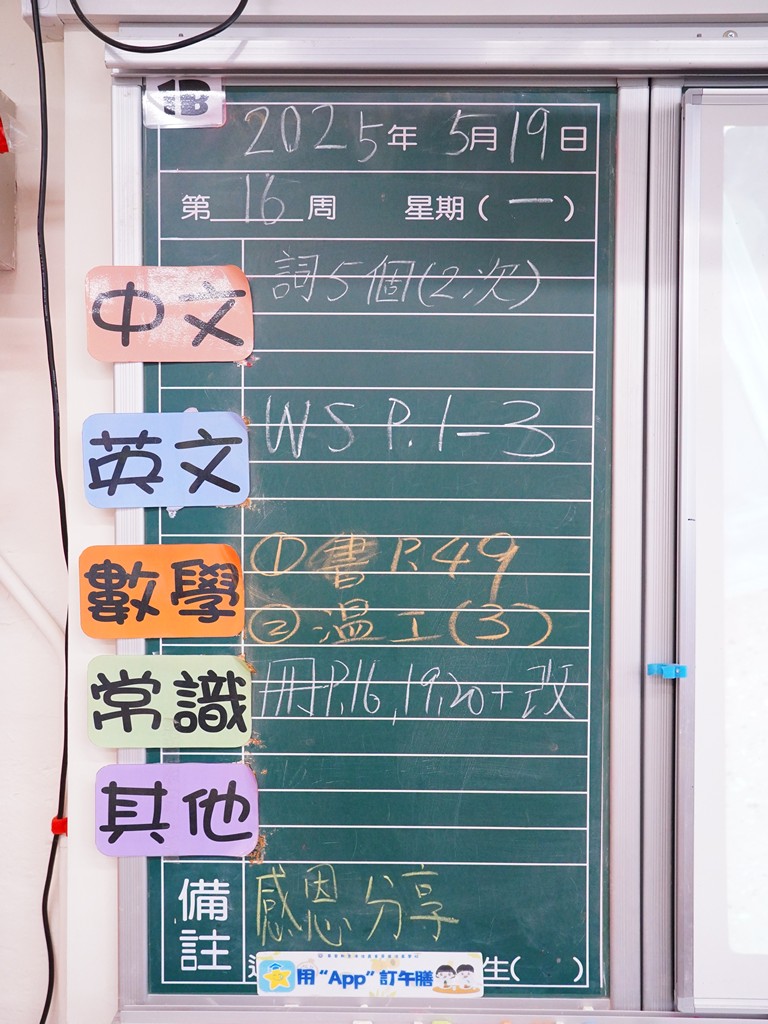 3B
2025年5月19日
第16周 星期(一)
中文 詞5個(2次)
英文 WS P.1-3
數學 ①書P.49
②溫工(3)
常識 冊P.16,19,20+改
其他
備註 感恩分享
生( )
用“App”訂午膳